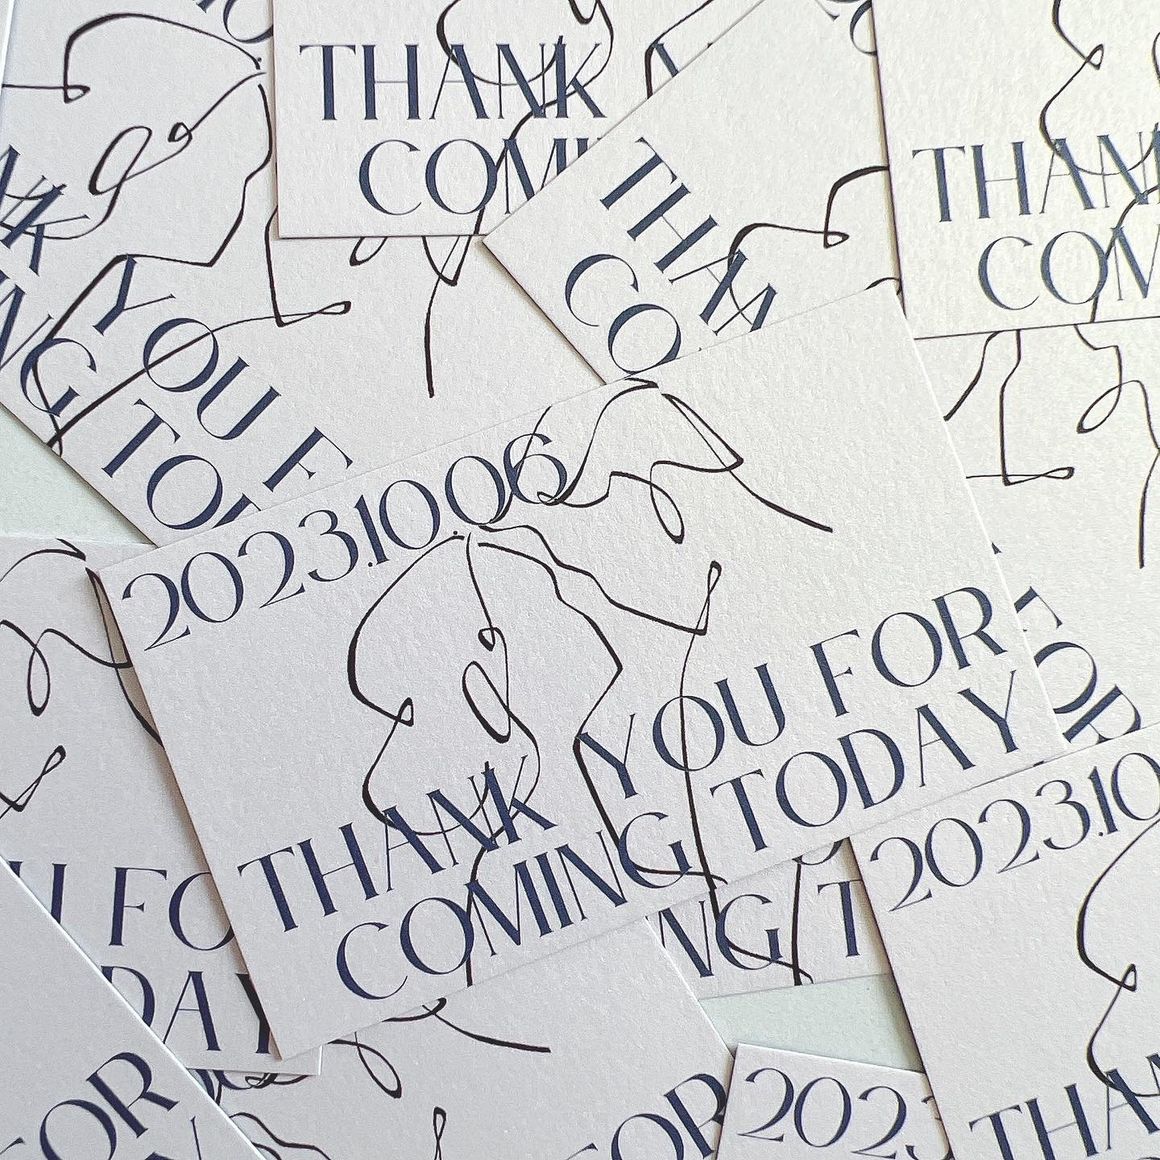 THANK
COMI
THAN
COM
THAN
CO
NK
NG
YOU F
TOD
2023.10.06
THANK YOU FOR
COMING TODAY
FOR
U FO
DAY
NG T
2023.10
THAN
FOR
2023
FOR